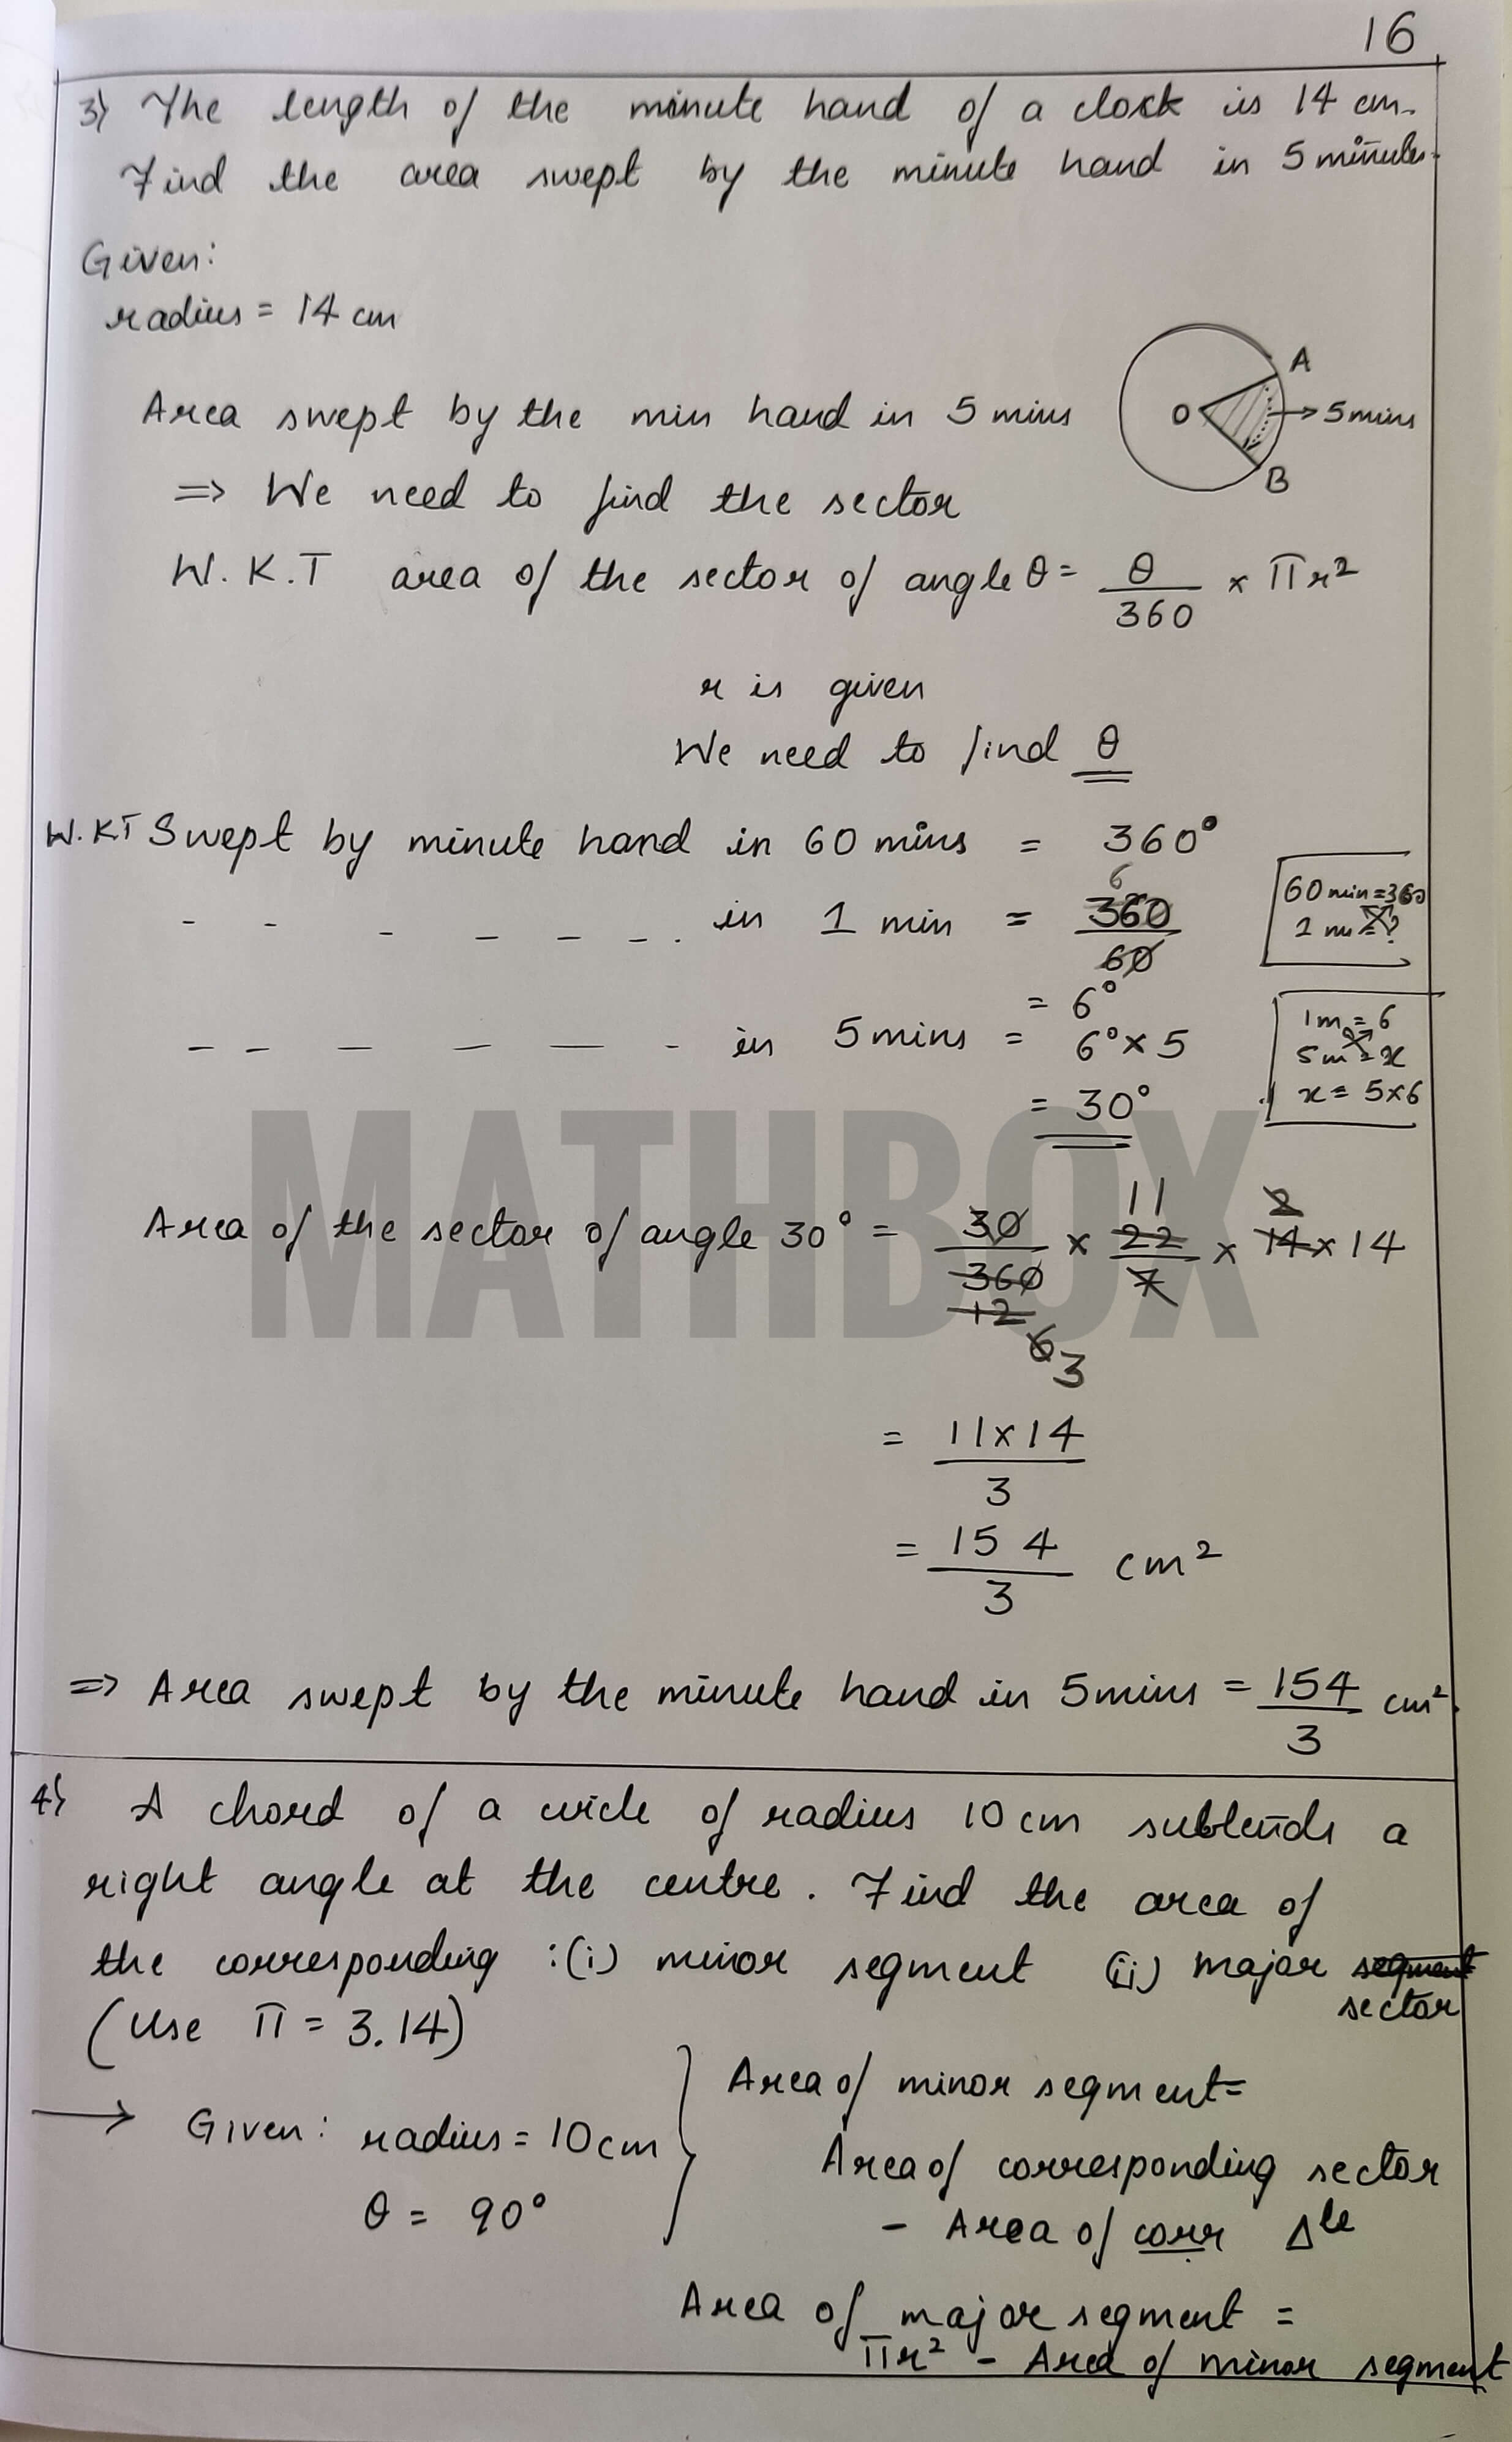 16
3) The length of the minute hand of a clock is 14 cm.
Find the area swept by the minute hand in 5 minutes.
Given:
radius = 14 cm
A
O
→ 5 mins
B
Area swept by the min hand in 5 mins
⇒ We need to find the sector
W.K.T area of the sector of angle θ = θ/360 × πr²
r is given
We need to find θ
W.KT Swept by minute hand in 60 mins = 360°
60 min = 360
1 m = ?
- - - - - - . in 1 min = 360/60
6
= 6°
- - - - - - in 5 mins = 6° × 5
1m = 6
5m = x
x = 5×6
= 30°
MATHBOX
Area of the sector of angle 30° = 30/360 × 22/7 × 14 × 14
11 2
12
6
3
= 11×14/3
= 154/3 cm²
⇒ Area swept by the minute hand in 5 mins = 154/3 cm².
4) A chord of a circle of radius 10 cm subtends a
right angle at the centre. Find the area of
the corresponding : (i) minor segment (ii) major segment
sector
(Use π = 3.14)
→ Given: radius = 10 cm
θ = 90°
Area of minor segment =
Area of corresponding sector
- Area of corr Δle
Area of major segment =
πr² - Area of minor segment